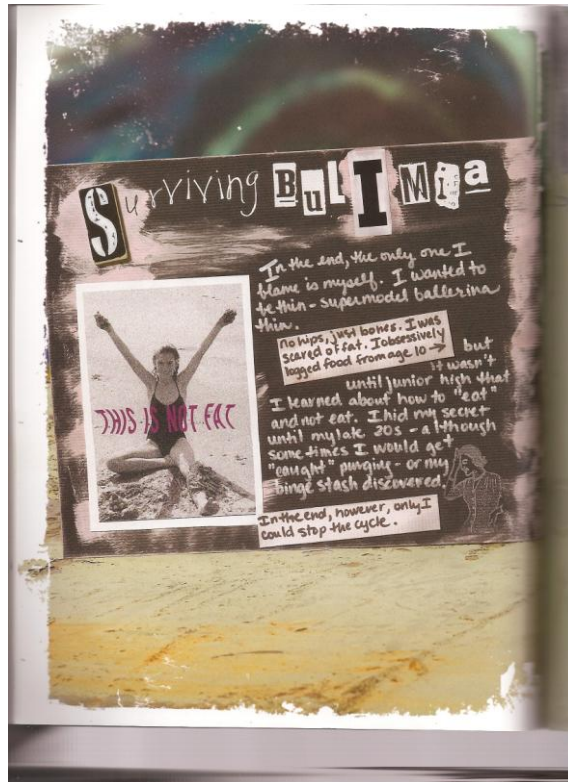 Surviving BulIMia
In the end, the only one I
blame is myself. I wanted to
be thin - supermodel ballerina
thin.
no hips, just bones. I was
scared of fat. I obsessively
logged food from age 10 →
but
it wasn't
until junior high that
I learned about how to "eat"
and not eat. I hid my secret
until my late 20s - although
sometimes I would get
"caught" purging - or my
binge stash discovered.
In the end, however, only I
could stop the cycle.
THIS IS NOT FAT